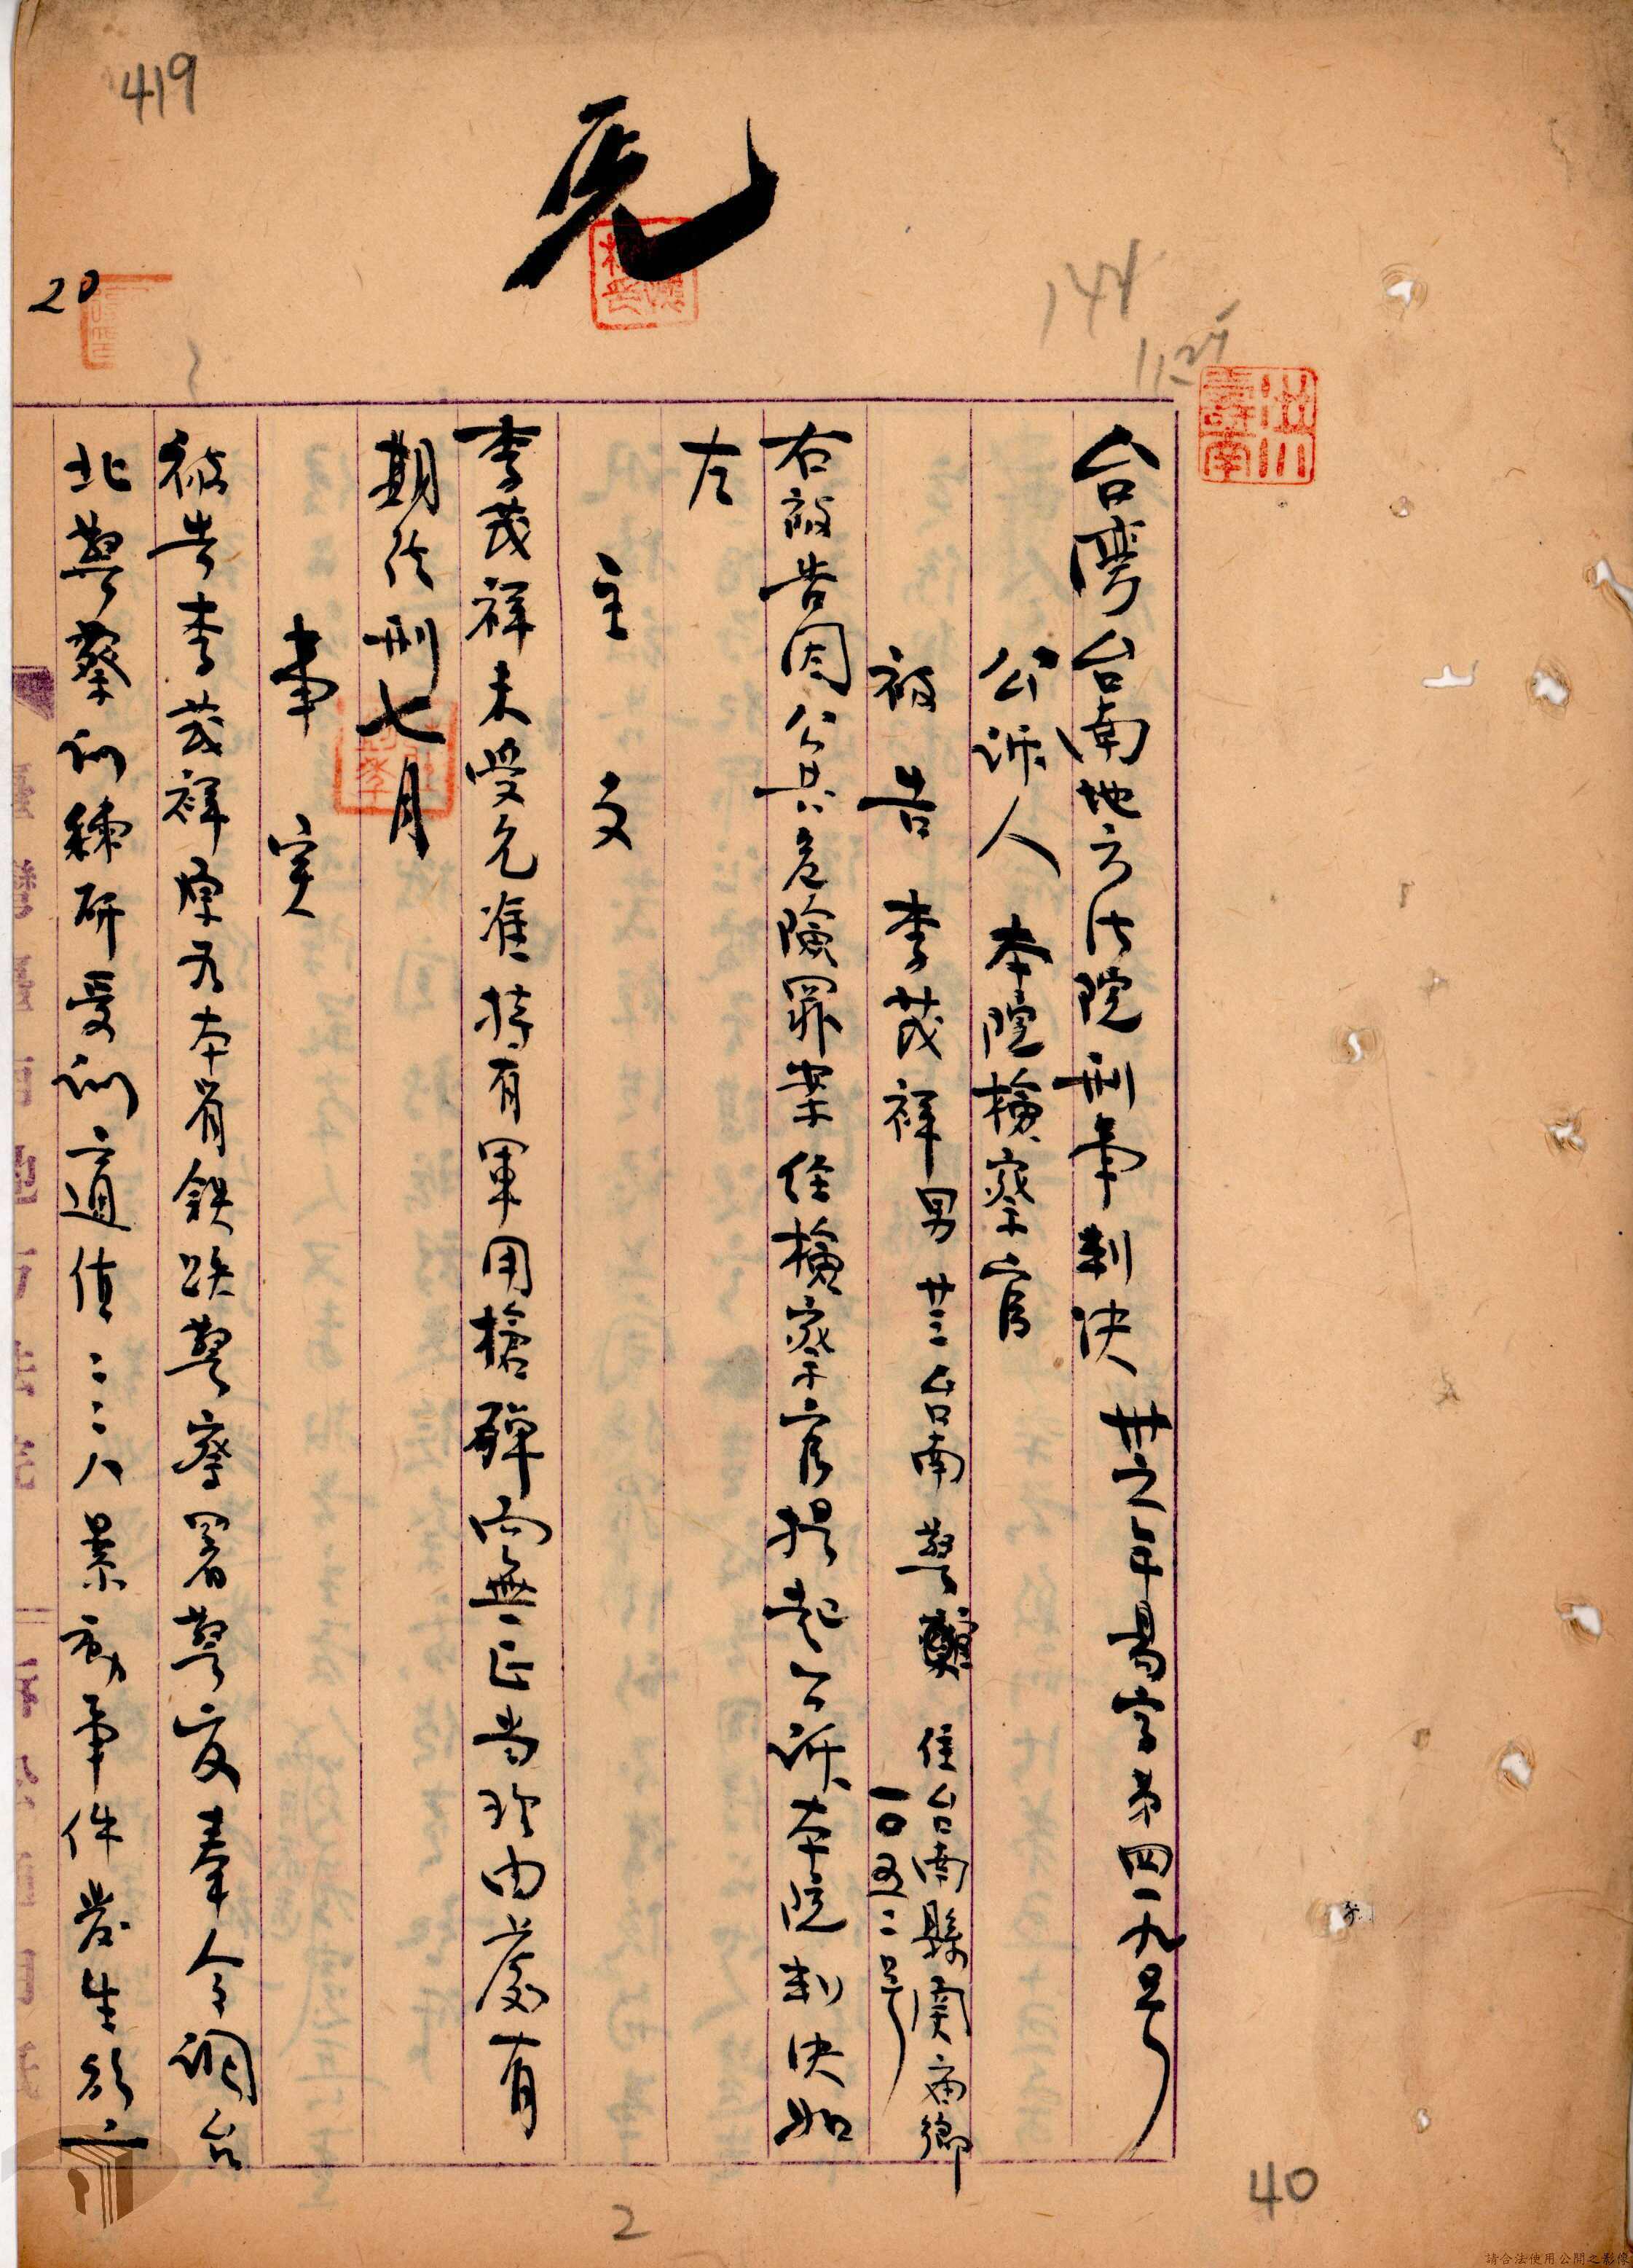 419
20
144
11-24
台湾台南地方法院刑事判决 卅六年易字第四一九号
公訴人 本院檢察官
被告 李茂祥 男 廿三 台南 警察 住台南縣関廟鄉
一〇五二号
右被告因公共危險罪案住檢察官提起公訴本院判决如
左
主文
李茂祥未受允准持有軍用槍彈而無正当理由處有
期徒刑七月
事実
被告李茂祥原为本省鉄路警察署警员奉令調台
北警察訓練所受訓適值二二八暴動事件發生於二
2
40
請合法使用公開之影像